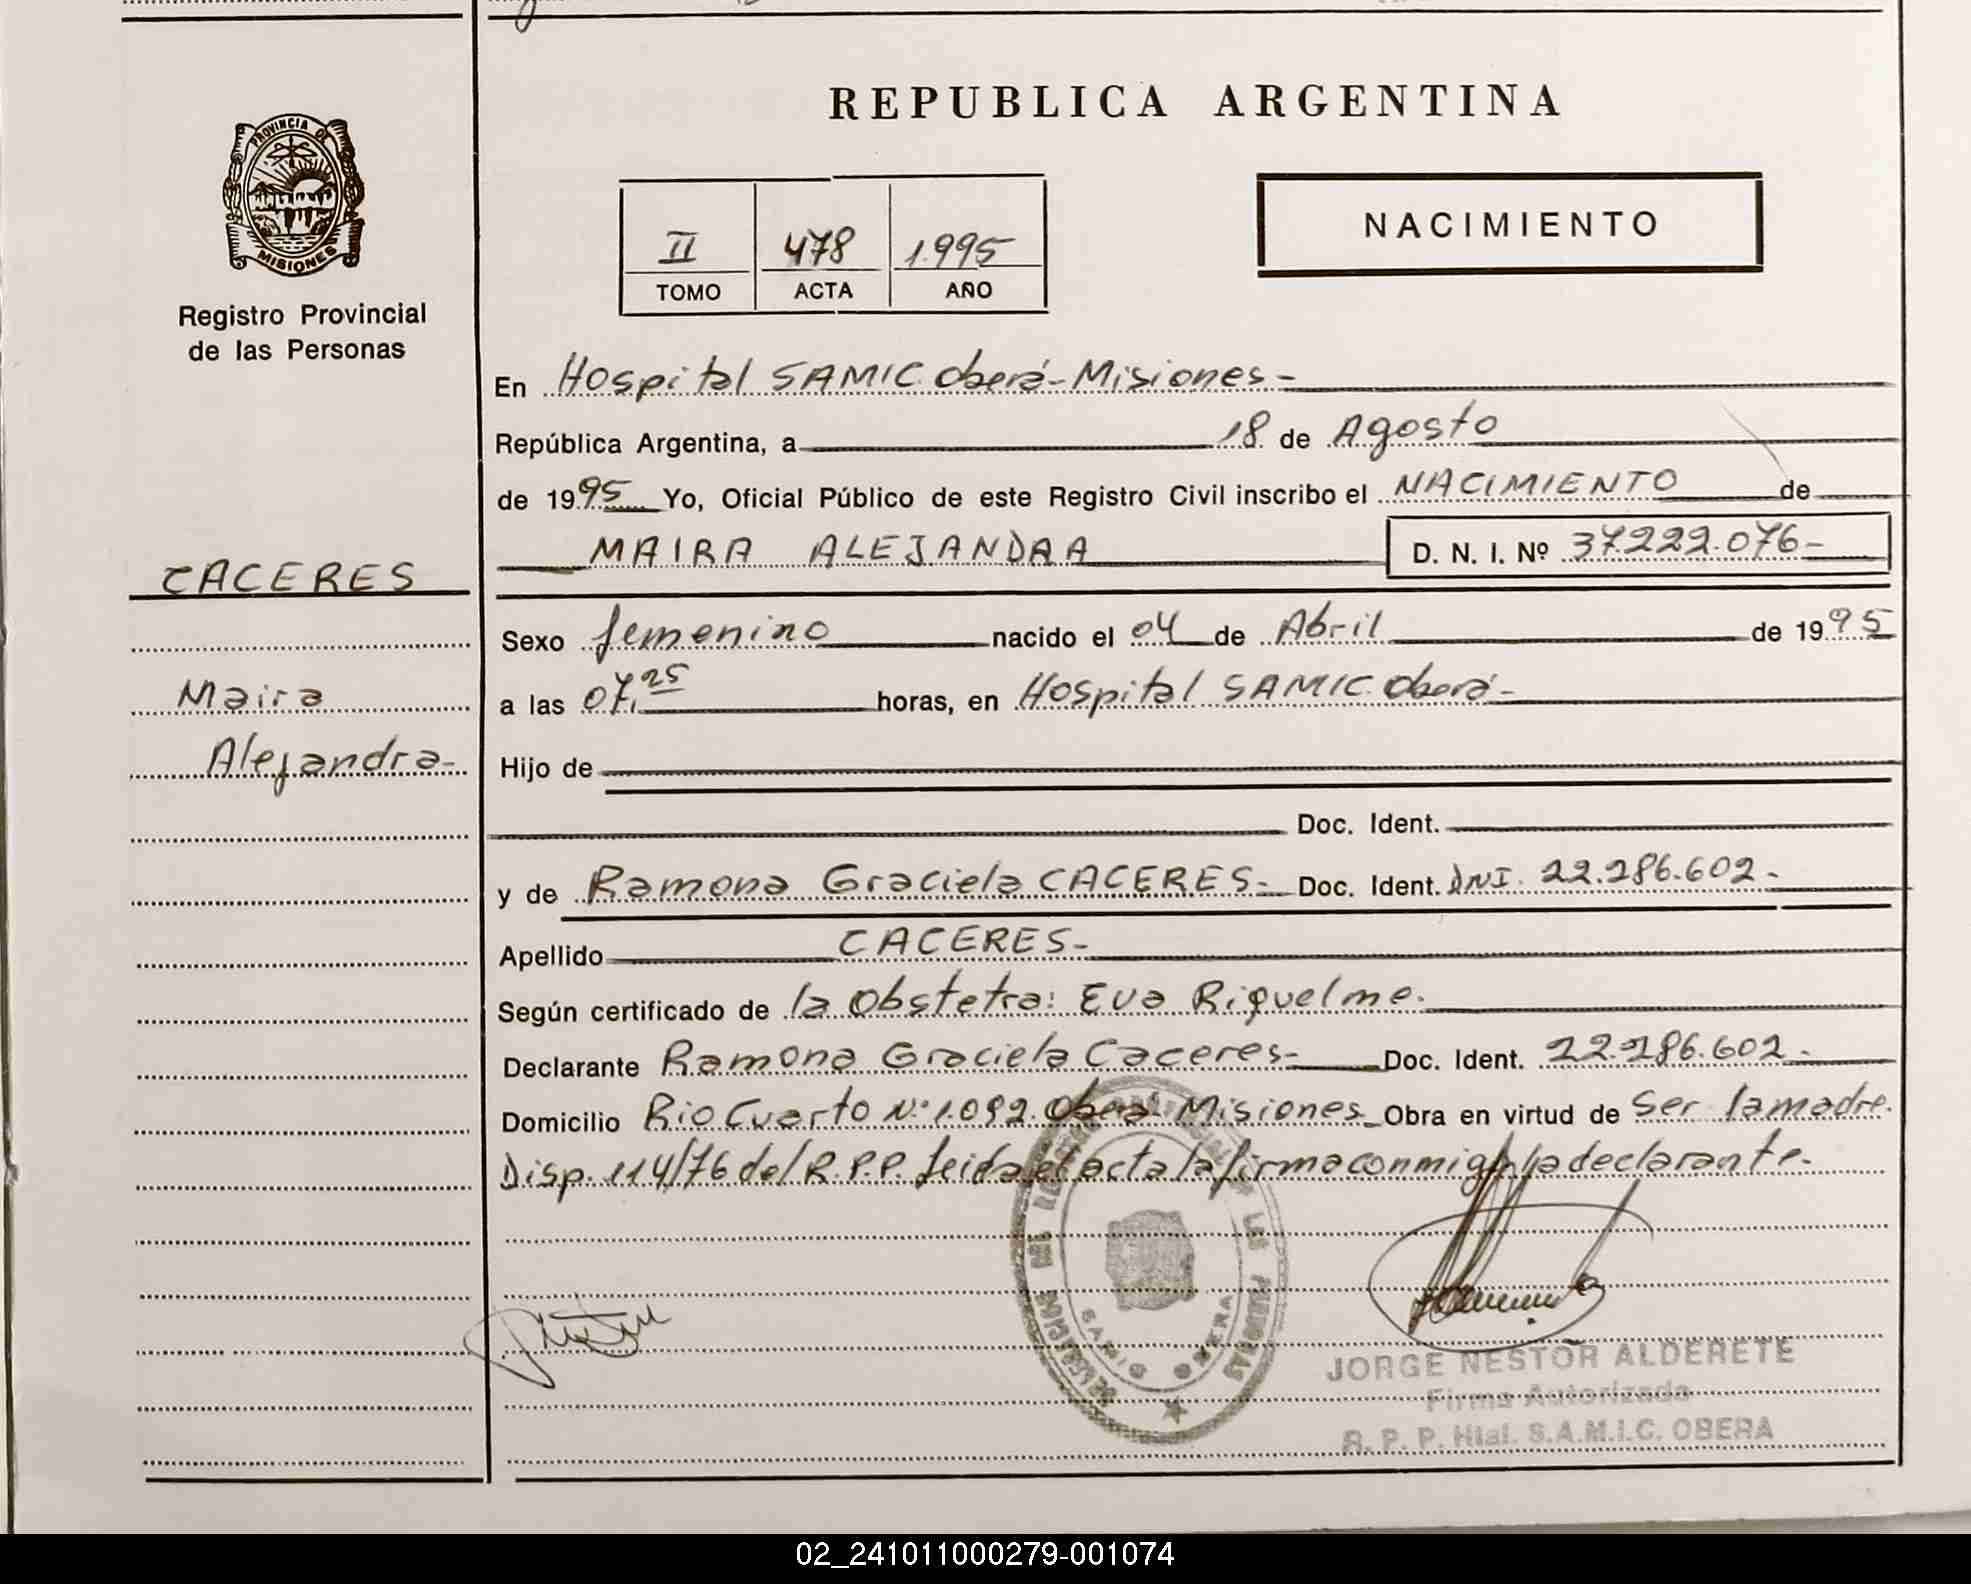 REPUBLICA ARGENTINA
PROVINCIA DE
MISIONES
Registro Provincial
de las Personas
II 478 1.995
TOMO ACTA AÑO
NACIMIENTO
En Hospital SAMIC. Oberá-Misiones-
República Argentina, a 18 de Agosto
de 1995 Yo, Oficial Público de este Registro Civil inscribo el NACIMIENTO de
MAIRA ALEJANDRA D. N. I. Nº 37.222.076-
CACERES
Maira
Alejandra-
Sexo femenino nacido el 04 de Abril de 1995
a las 07,25 horas, en Hospital SAMIC. Oberá-
Hijo de
Doc. Ident.
y de Ramona Graciela CACERES- Doc. Ident. DNI. 22.286.602-
Apellido CACERES-
Según certificado de la Obstetra: Eva Riquelme.
Declarante Ramona Graciela Caceres- Doc. Ident. 22.286.602-
Domicilio Rio Cuarto Nº 1.092. Oberá-Misiones Obra en virtud de Ser la madre.
Disp. 114/76 del R.P.P. leida el acta la firma conmigo la declarante.
JORGE NESTOR ALDERETE
Firma Autorizada
R. P. P. Htal. S.A.M.I.C. OBERA
02_241011000279-001074